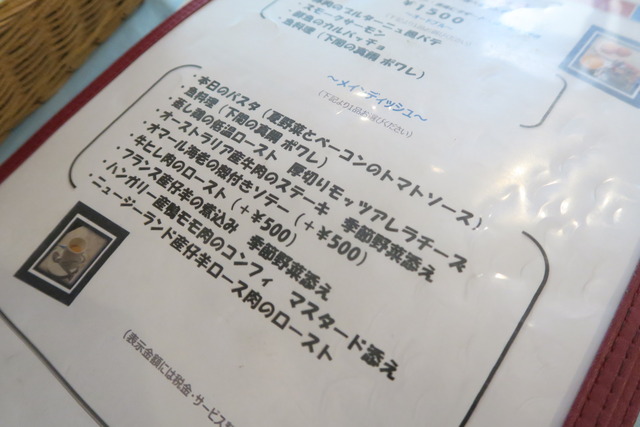 ¥1500
スモークサーモン
魚料理（下関の真鯛 ポワレ）
～メイン・ディッシュ～
（下記より1品お選びください）
・本日のパスタ（夏野菜とベーコンのトマトソース）
・魚料理（下関の真鯛 ポワレ）
・蒸し鶏の低温ロースト　厚切りモッツアレラチーズ
・オーストラリア産牛肉のステーキ　季節野菜添え
・オマール海老の殻付きソテー（＋¥500）
・牛ヒレ肉のロースト（＋¥500）
・フランス産仔牛の煮込み　季節野菜添え
・ハンガリー産鴨モモ肉のコンフィ　マスタード添え
・ニュージーランド産仔羊ロース肉のロースト
（表示金額には税金・サービス